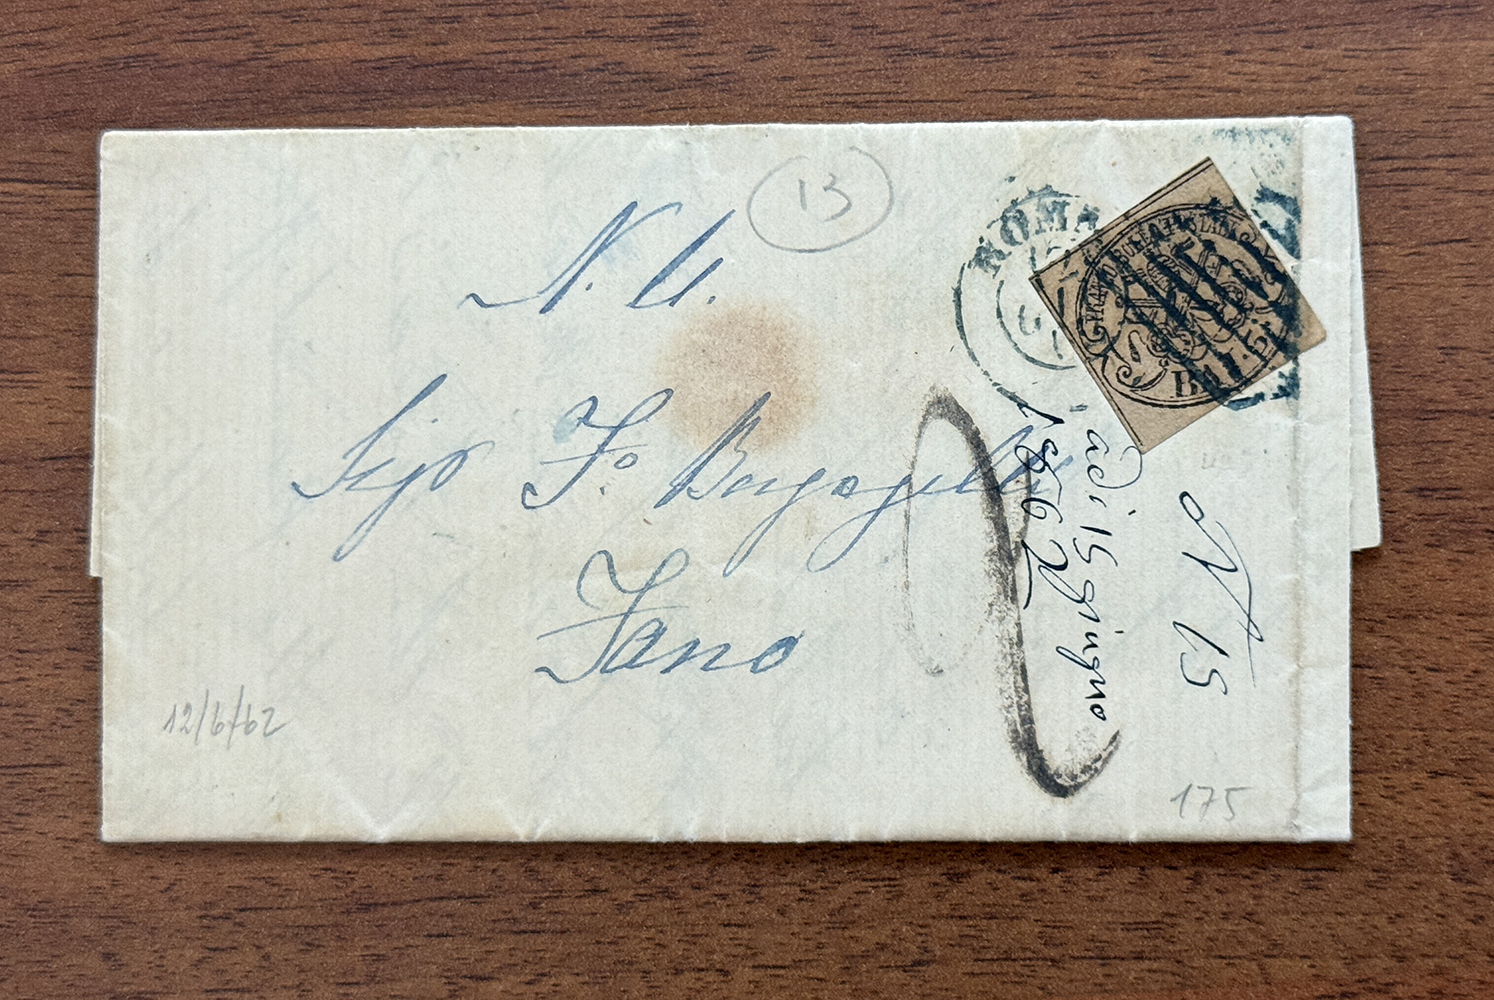 13
N. U.
Sigr Fo Bargagelli
Fano
ROMA
FRANCO BOLLO POSTALE
BAI
adi 15 giugno
1862
N 15
12/6/62
175